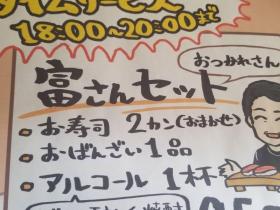 タイムサービス
18:00~20:00まで
おつかれさん
富さんセット
・お寿司 2カン(おまかせ)
・おばんざい1品
・アルコール 1杯